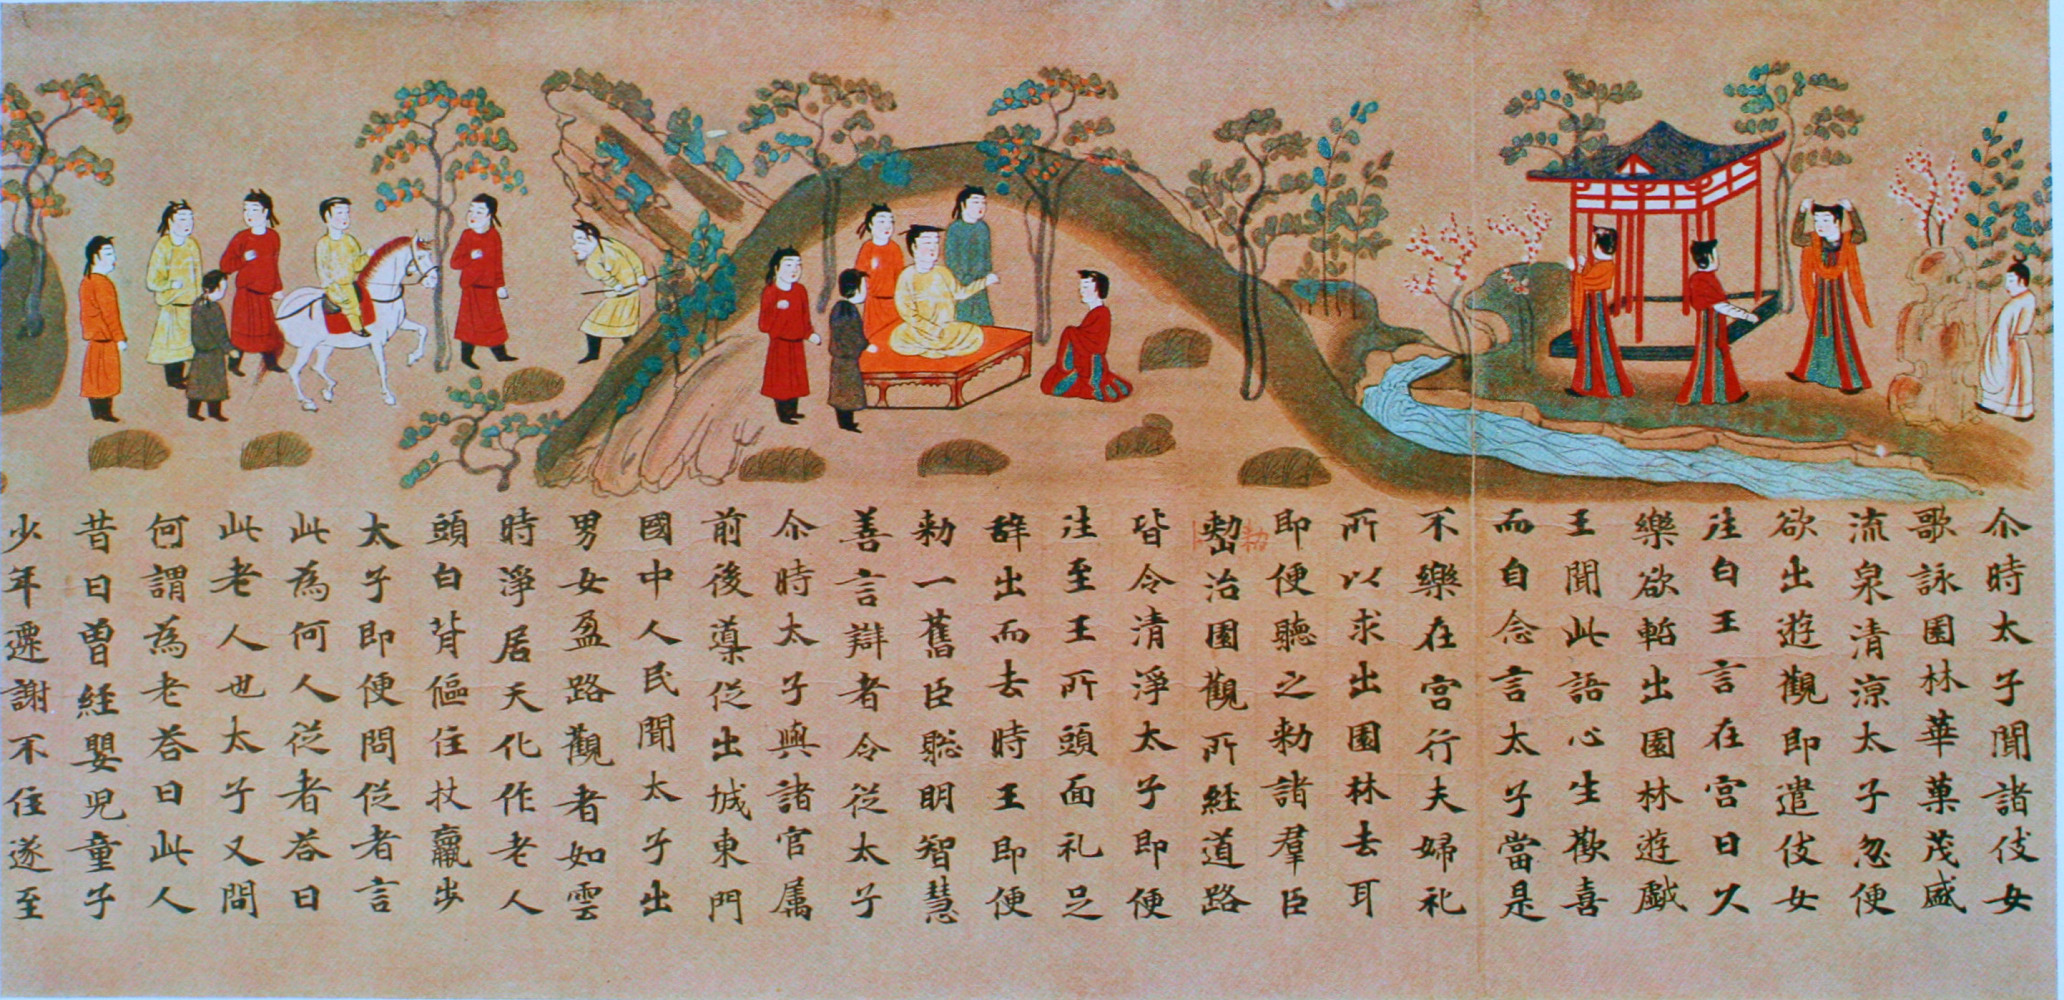 尒時太子聞諸伎女
歌詠園林華菓茂盛
流泉清涼太子忽便
欲出遊觀即遣伎女
往白王言在宮日久
樂欲暫出園林遊戯
王聞此語心生歡喜
而自念言太子當是
不樂在宮行夫婦礼
所以求出園林去耳
即便聽之勅諸羣臣
治園觀所経道路
皆令清淨太子即便
往至王所頭面礼足
辞出而去時王即便
勅一舊臣聡明智慧
善言辯者令従太子
尒時太子與諸官属
前後導従出城東門
國中人民聞太子出
男女盈路觀者如雲
時淨居天化作老人
頭白背傴住杖羸歩
太子即便問従者言
此為何人従者荅曰
此老人也太子又問
何謂為老荅曰此人
昔日曽経嬰児童子
少年遷謝不住遂至